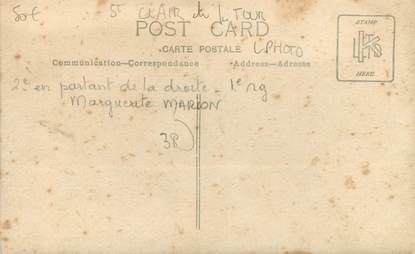 50€ St CLAIR de la TOUR
POST CARD
CARTE POSTALE CPHOTO
Communication—Correspondance Address—Adresse
2e en partant de la droite - 1e rg
Marguerite MARION
38
STAMP
HERE